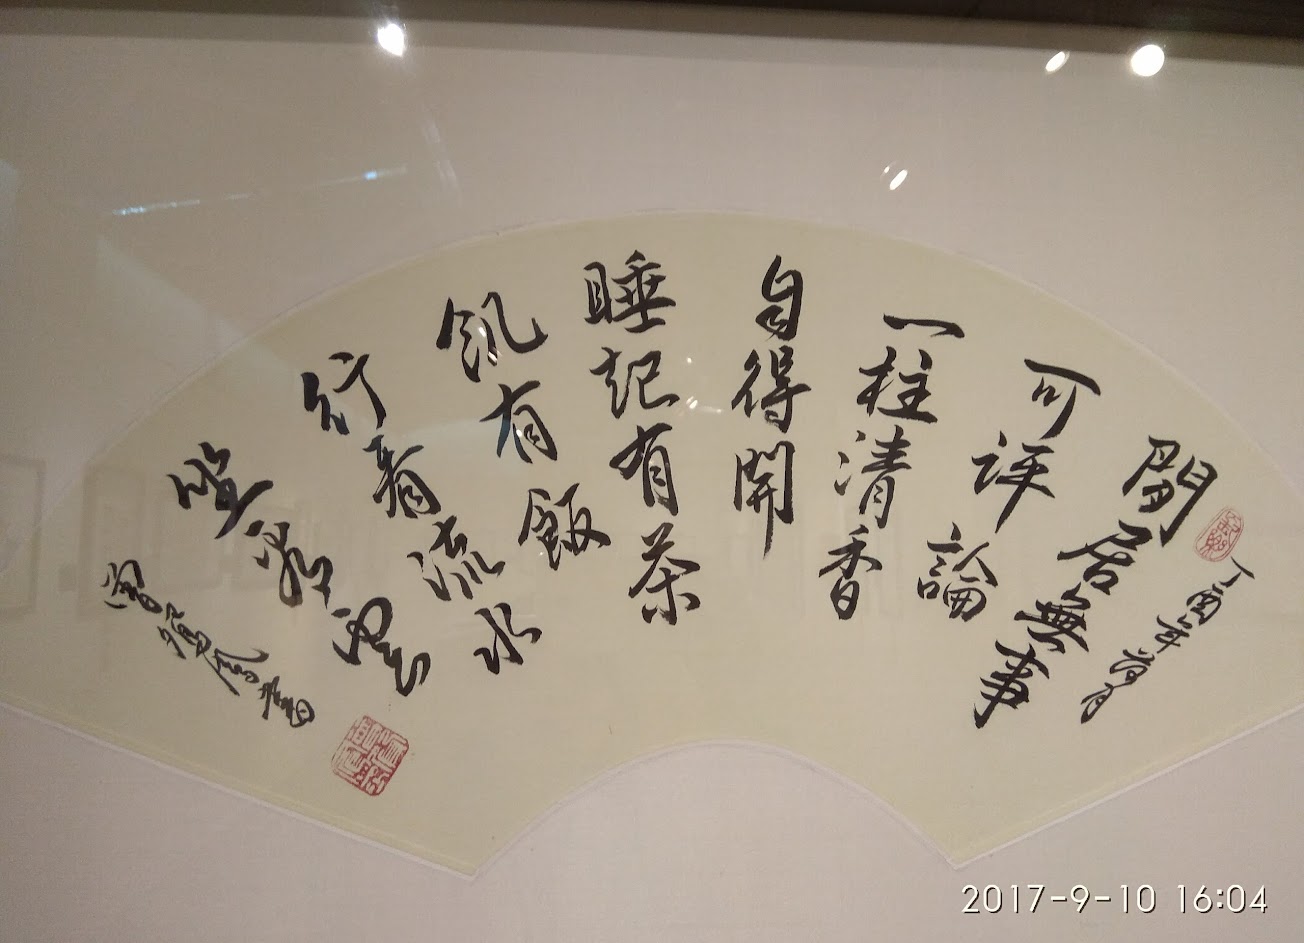 閒居無事
可評論
一柱清香
自得聞
睡起有茶
飢有飯
行看流水
坐看雲
丁酉年
書
2017-9-10 16:04